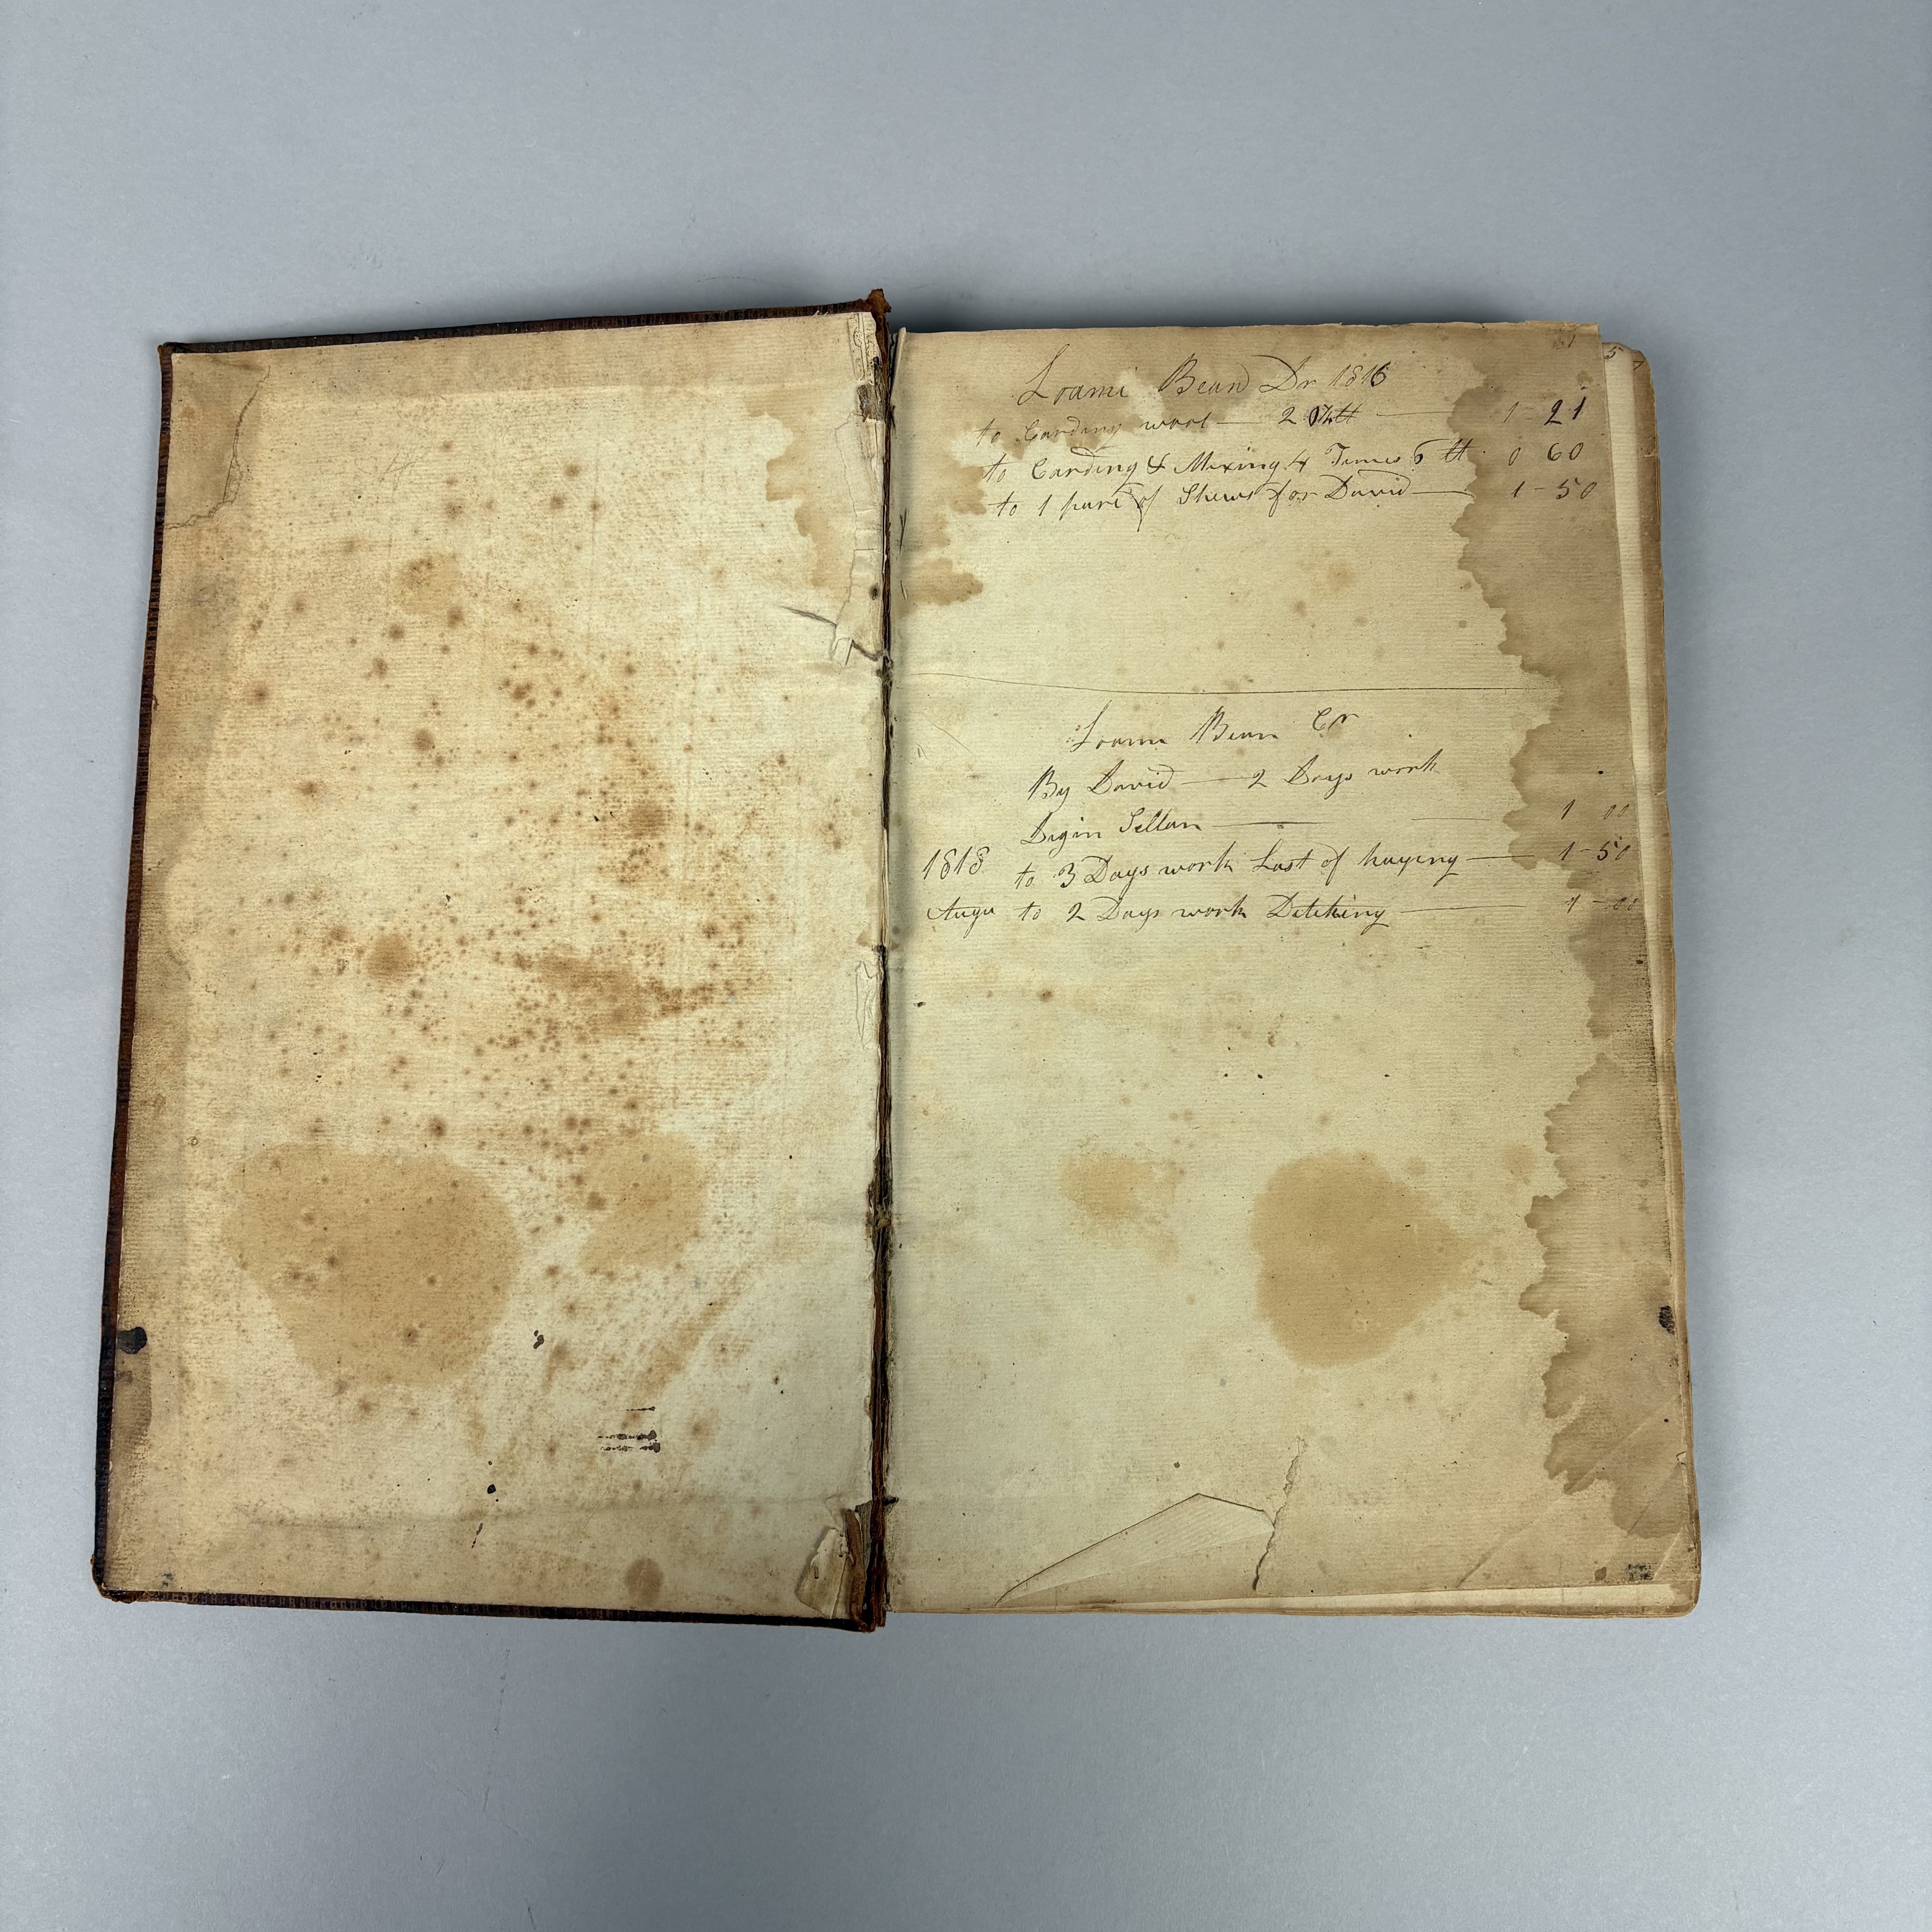 1
5
Loami Bean Dr 1816
to Carding wool — 20 lb — 1-21
to Carding & Mixing 4 Times 6 lb 0 60
to 1 pare of Shews for David — 1-50
Loami Bean Cr
By David — 2 Days work
Digin Sellan — 1 00
1818 to 3 Days work Last of haying — 1-50
Augu to 2 Days work Ditching — 1-00